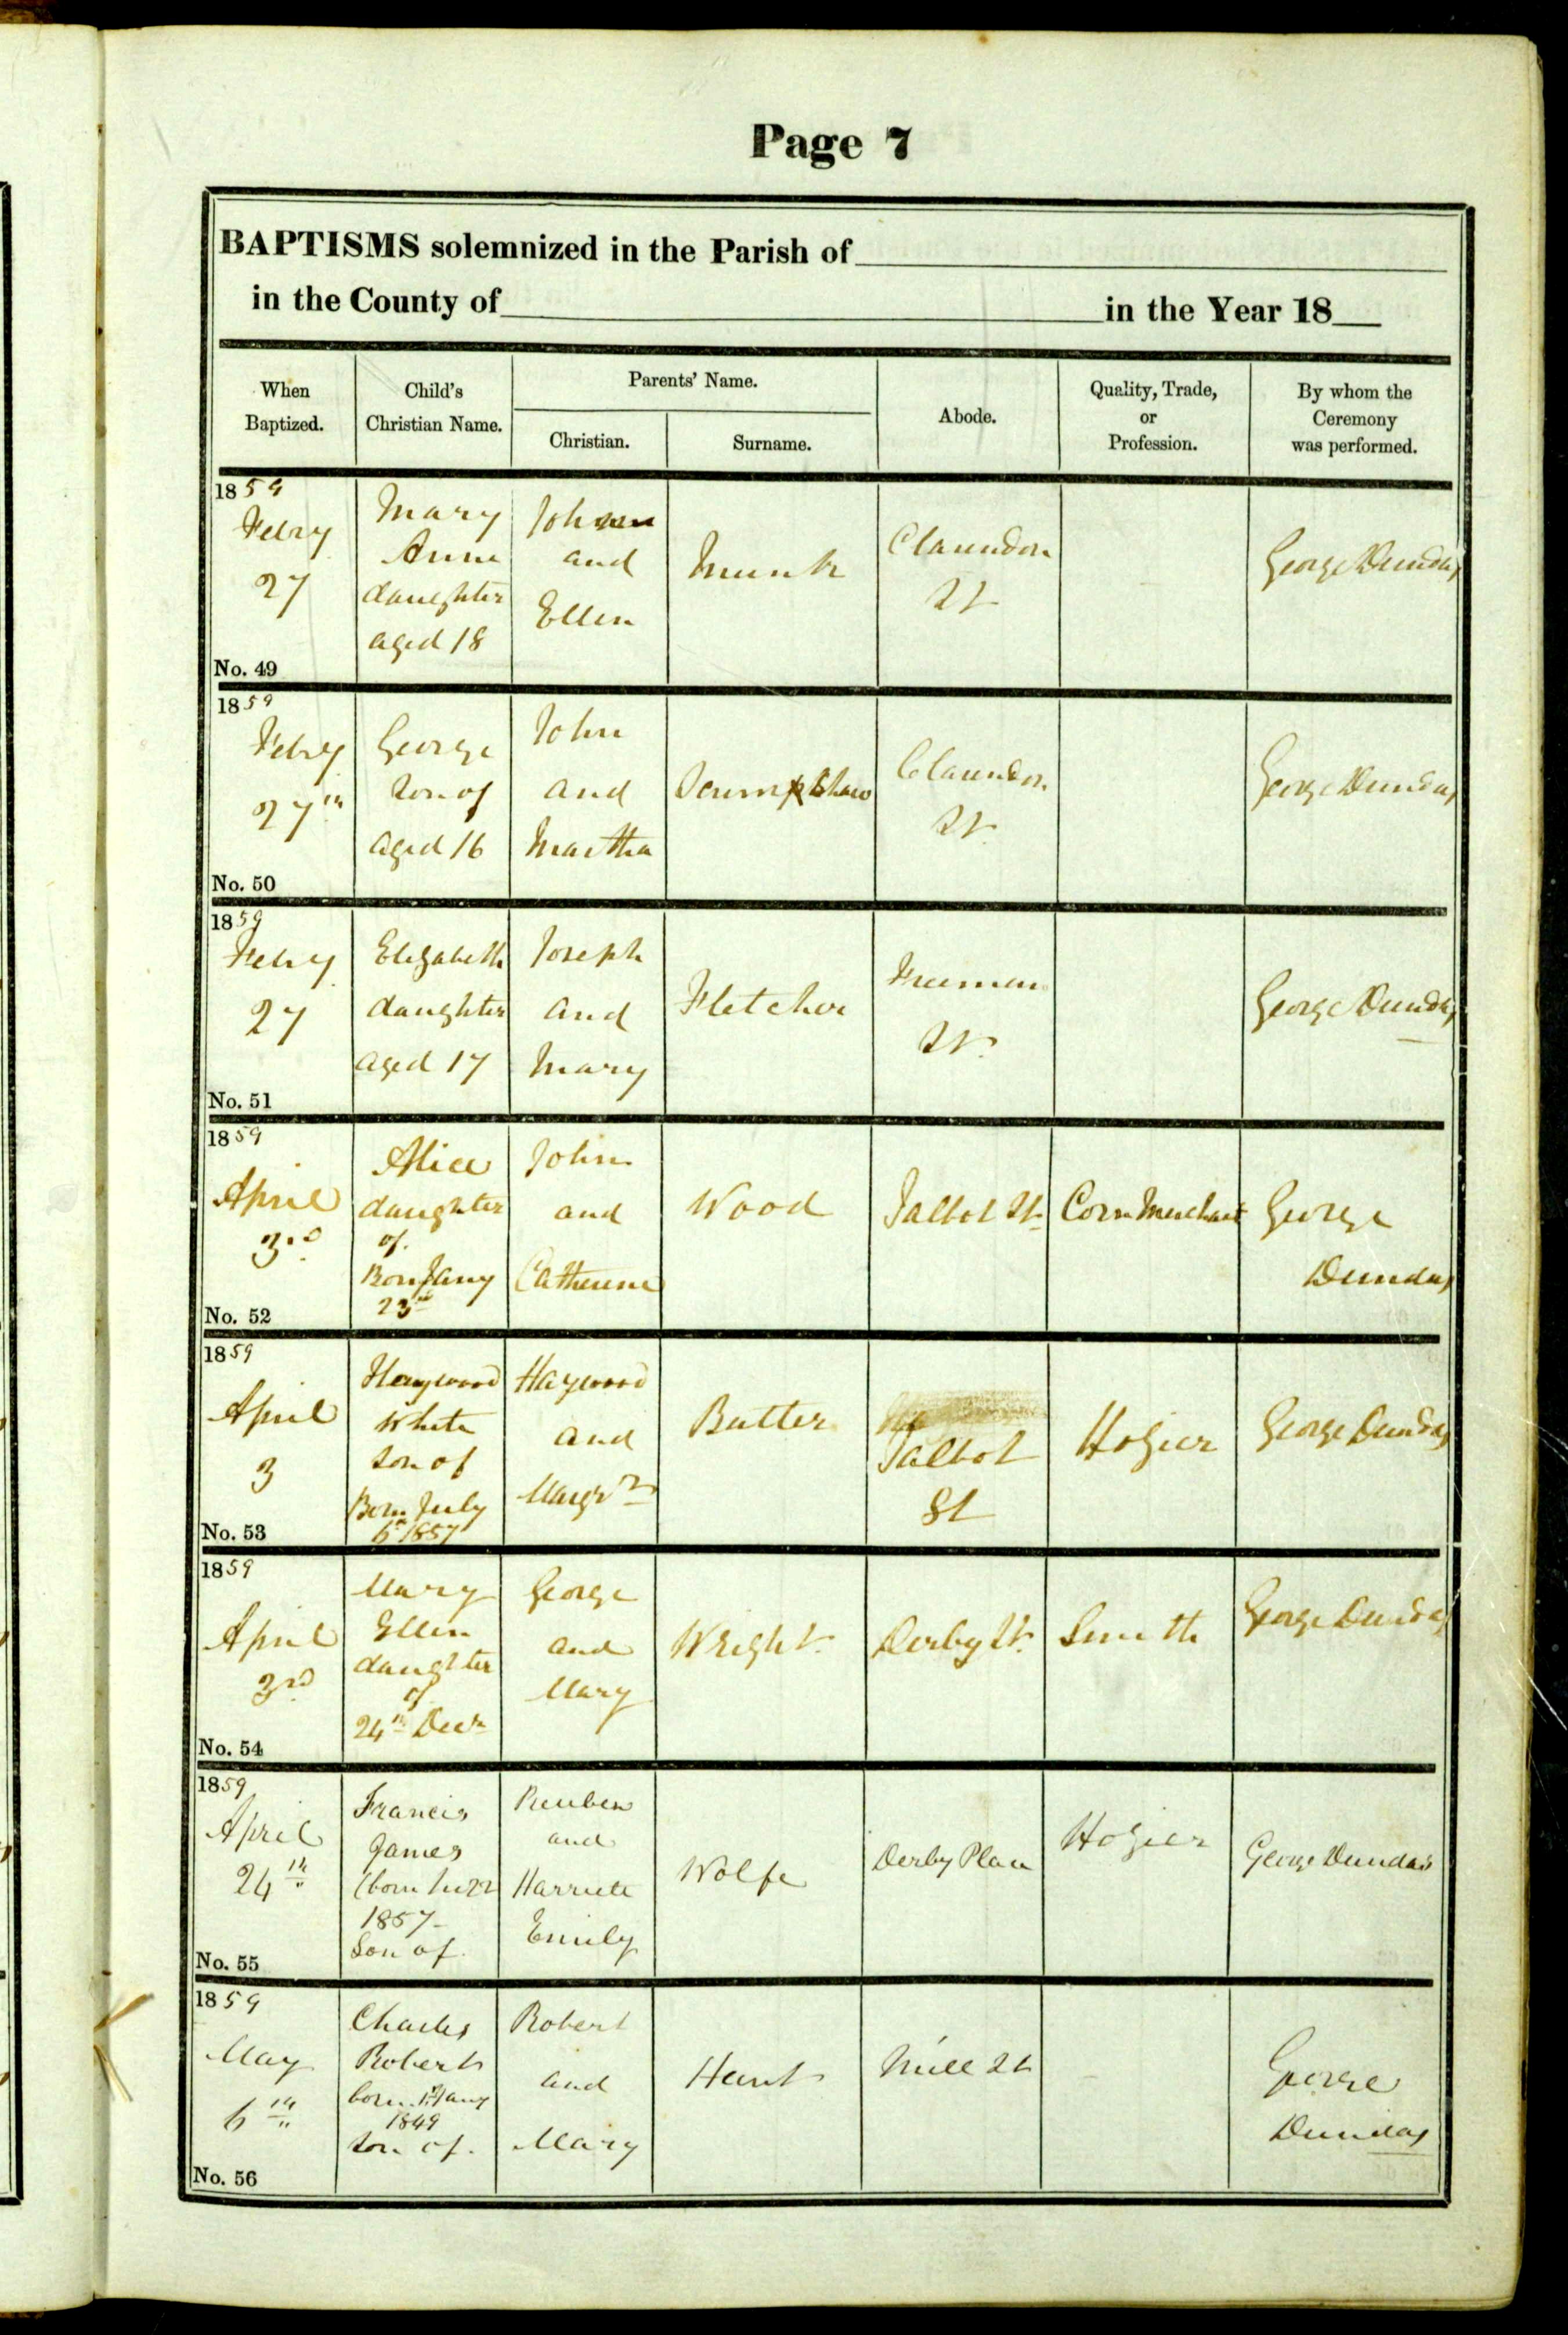 Page 7
BAPTISMS solemnized in the Parish of
in the County of in the Year 18
When Baptized.
Child's Christian Name.
Parents' Name.
Christian.
Surname.
Abode.
Quality, Trade, or Profession.
By whom the Ceremony was performed.
1859
Febry
27
No. 49
Mary
Anne
daughter
aged 18
John
and
Ellen
Munk
Clarendon
St
George Dundas
1859
Febry
27th
No. 50
George
Son of
aged 16
John
and
Martha
Clarendon
St
George Dundas
1859
Febry
27
No. 51
Elizabeth
daughter
aged 17
Joseph
and
Mary
Fletcher
Freeman
St.
George Dundas
1859
April
3rd
No. 52
Alice
daughter
of.
Born Jany
23rd
John
and
Catherine
Wood
Talbot St
Corn Merchant
George
Dundas
1859
April
3
No. 53
Haywood
White
Son of
Born July
6th 1857
Haywood
and
Margrt
Butter
Talbot
St
Hosier
George Dundas
1859
April
3rd
No. 54
Mary
Ellen
daughter
of
24th Decr
George
and
Mary
Wright
Derby St.
Smith
George Dundas
1859
April
24th
No. 55
Francis
James
(born
1857
Son of
Reuben
and
Harriete
Emily
Wolfe
Derby Place
Hosier
George Dundas
1859
May
6th
No. 56
Charles
Robert
born Jany
1849
Son of.
Robert
and
Mary
Hunt
Mill St
George
Dundas